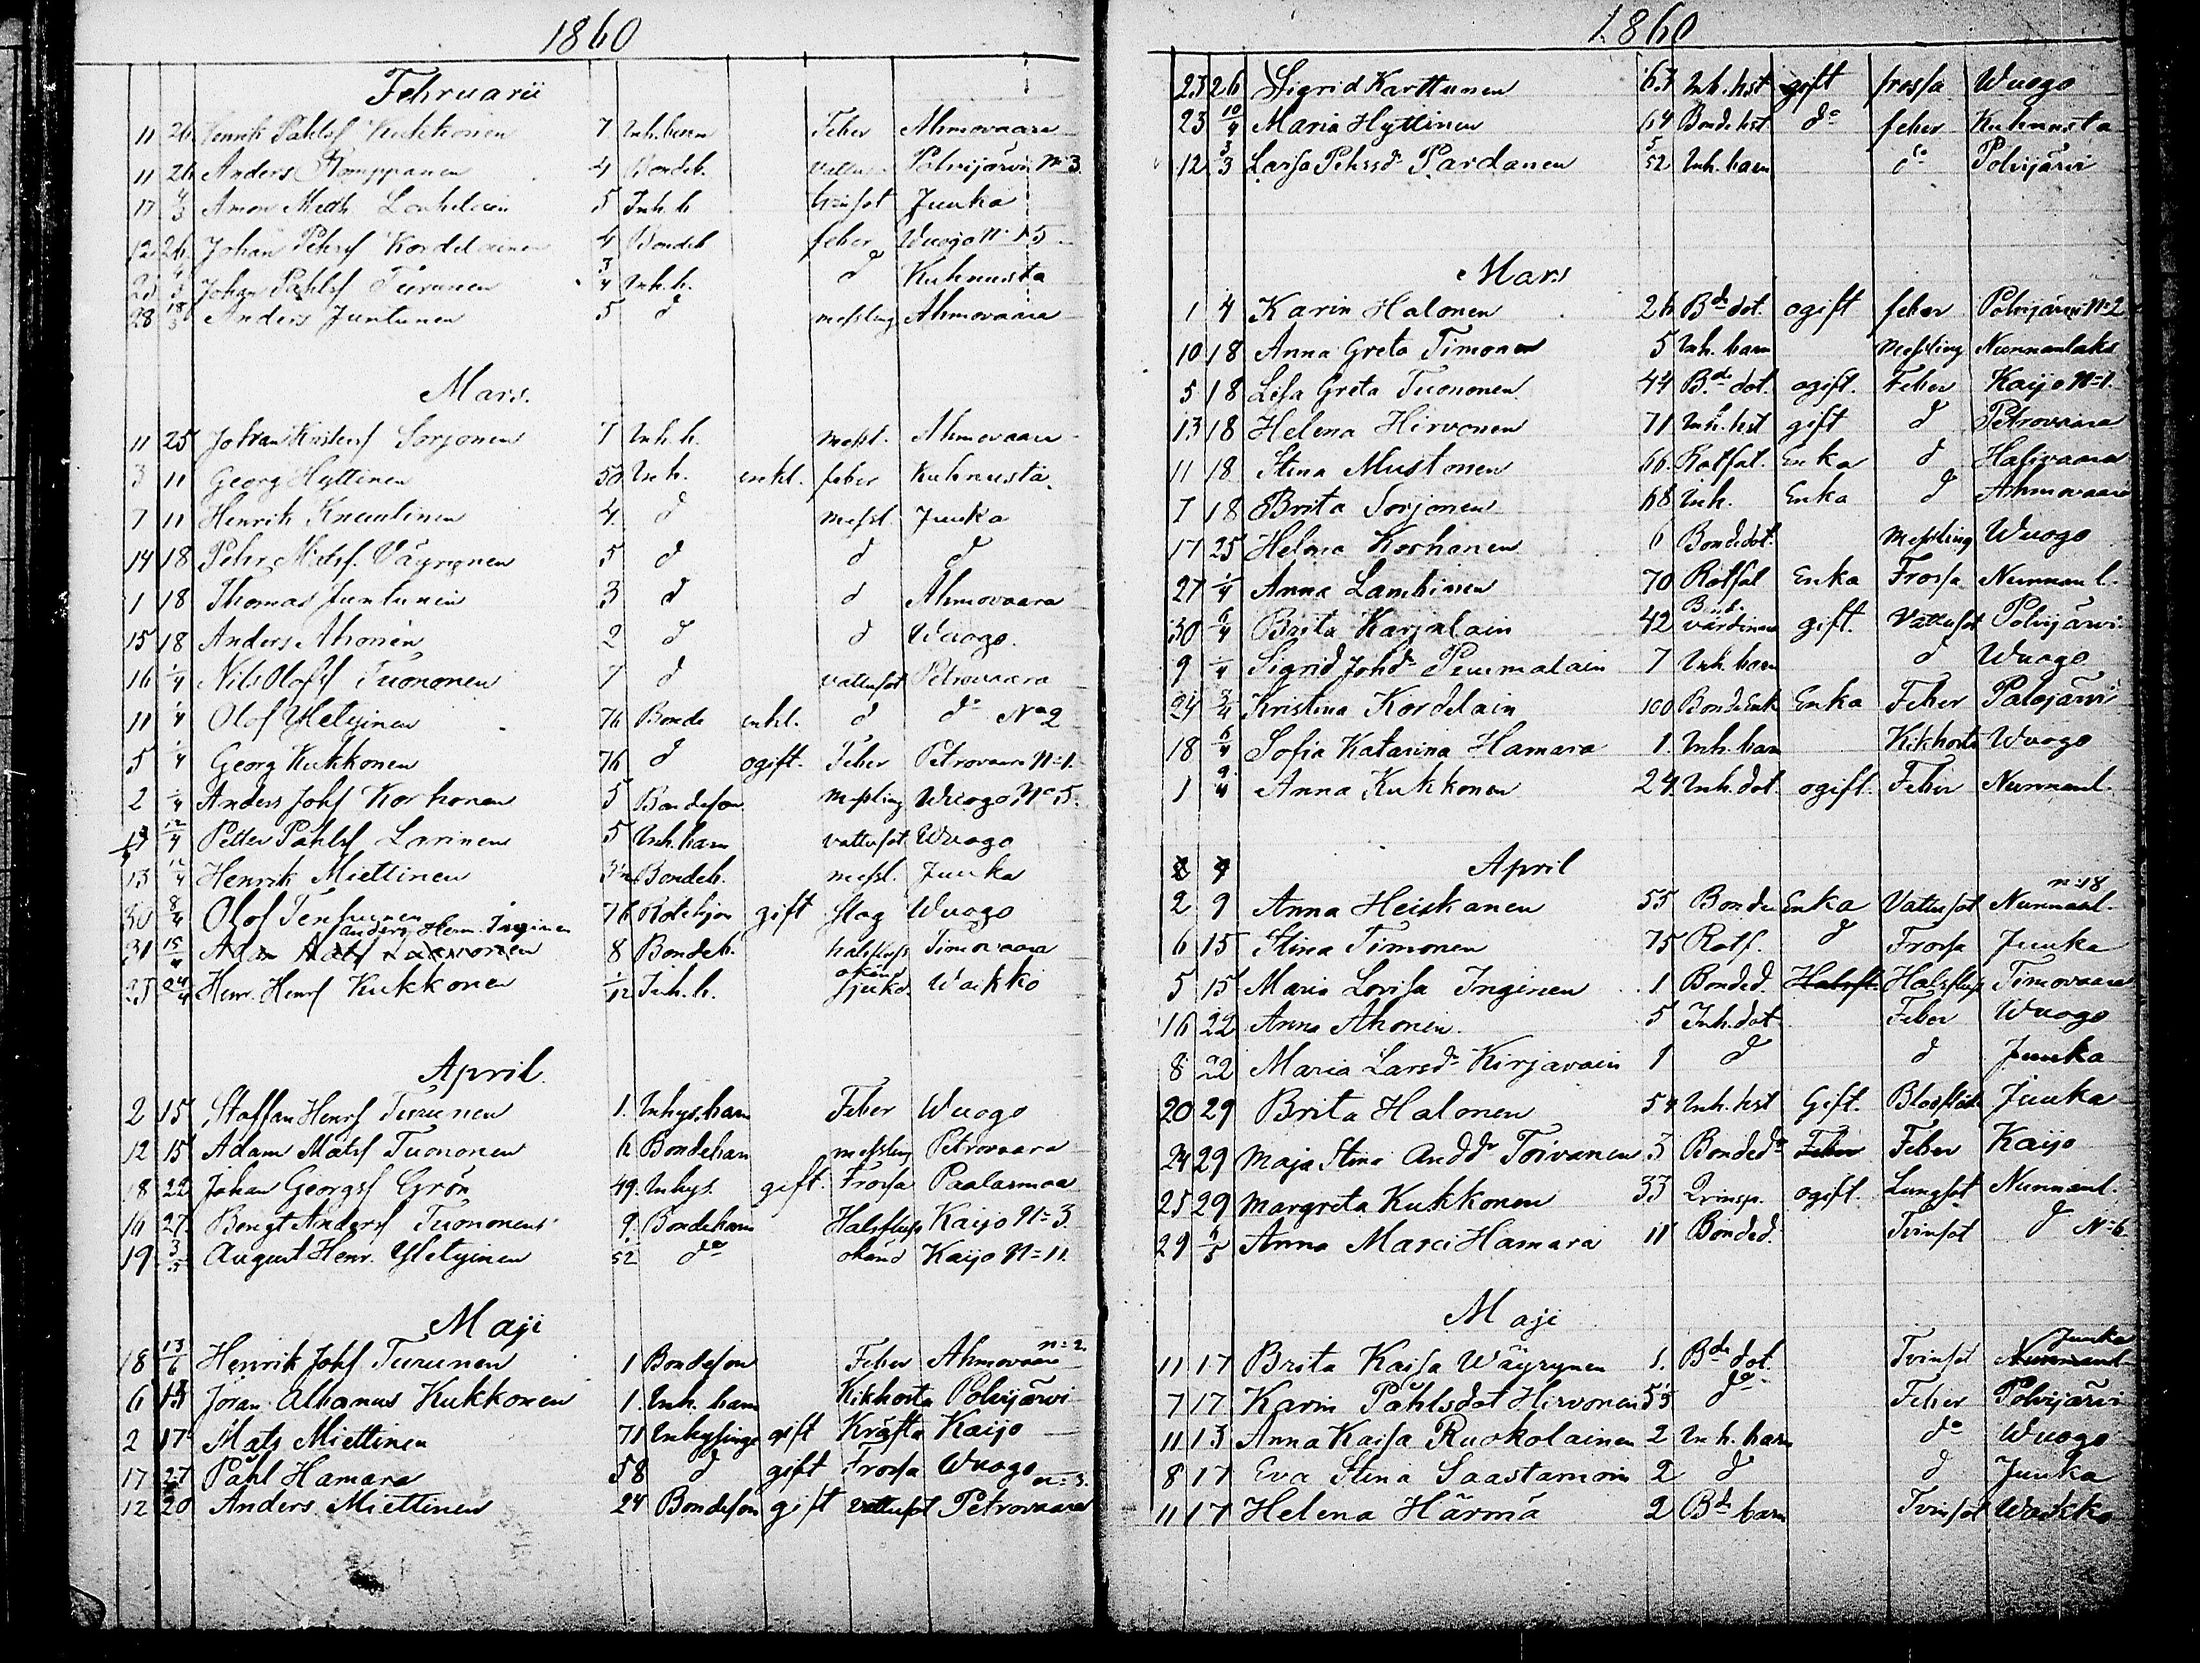 1860
Februarii
11 26 Henrik Påhlsf Kukkonen 7 Inh. barn Feber Ahmovaara
11 26 Anders Romppanen 4 Bondeb. vattus. Polvijärvi No 3
17 4/3 Amon Math. Lonkelain 5 Inh. b Juuka
12 26 Johan Pehrsf Kordelainen 4 Bondeb feber Wuogo No 15
23 4/3 Johan Påhlsf Turunen 3/4 Inh. b. d Kuhnusta
28 18/3 Anders Juntunen 5 d meßling Ahmovaara
Mars.
11 25 Johan Kristersf Sorjonen 7 Inh. b. meßl. Ahmovaara
3 11 Georg Hyttinen 50 Inh. enkl. feber Kuhnusta
7 11 Henrik Knuutinen 4 d meßl. Juuka
14 18 Pehr Matsf. Väyrynen 5 d d d
1 18 Thomas Juntunen 3 d d Ahmovaara
15 18 Anders Ahonen 2 d d Wuogo.
16 1/4 Nils Olofsf Tuononen 7 d vattusot Petrovaara
11 1/4 Olof Yletyinen 76 Bonde enkl. d do No 2
5 1/4 Georg Kukkonen 76 d ogift. Feber Petrovaara No 1.
2 1/4 Anders Johsf Korhonen 5 Bondeson meßling Wuogo No 5.
17 12/4 Petter Påhlsf Larinen 5 Inh. barn vattusot Wuogo
13 12/4 Henrik Miettinen Bondeb. meßl. Juuka
30 8/4 Olof Tenhunen 76 Rotehjon gift slag Wuogo
Anders Henr. Inginen
31 15/4 8 Bondeb. halsfluss Timovaara
23 24/4 Henr. Henrsf Kukkonen 1/12 Inh. b. okänd sjukd. Waikko
April.
2 15 Staffan Henrsf Turunen 1. Inhys barn Feber Wuogo
12 15 Adam Matsf Tuononen 6 Bondebarn meßling Petrovaara
18 22 Johan Georgsf Grön 49. Inhys. gift. Frossa Paalasmaa
16 27. Bengt Andersf Tuononen 9. Bondebarn Halsfluss Kaijo No 3.
19 3/5 August Henr. Yletyinen /52 do okänd Kaijo No 11.
Maji
18 13/6 Henrik Johsf Turunen 1 Bondeson Feber Ahmovaara n:o 2
6 13 Johan Albanus Kukkonen 1. Inh. barn Kikhosta Polvijärvi
2 17 Mats Miettinen 71 Inhysinge gift Kräfta Kaijo
17 27 Påhl Hamara 58 d gift Frossa Wuogo
12 20 Anders Miettinen 24 Bondeson gift Vattusot Petrovaara n:o 3.
1860
23 26 Sigrid Karttunen 63 Inh. hst gift frossa Wuogo
23 10/4 Maria Hyttinen 64 Bonde hst do feber Kuhnusta
12 3/3 Lovisa Pehrsdr Pardanen 5/52 Inh. barn do Polvijärvi
Mars
1 4 Karin Halonen 26 Bde dot. ogift feber Polvijärvi No 2
10 18 Anna Greta Timonen 5 Inh. barn Meßling Nunnanlaks
5 18 Lisa Greta Tuononen 44 Bde dot. ogift. Feber Kaijo No 1.
13 18 Helena Hirvonen 71 Inh. hst gift d Petrovaara
11 18 Stina Mustonen 66. Rotfat. Enka d Halivaara
7 18 Brita Sorjonen 68 Inh. Enka d Ahmovaara
17 25 Helena Korhonen 6 Bondedot. Meßling Wuogo
27 1/4 Anna Lambinen 70 Rotfat Enka Frossa Nunnanl.
30 6/4 Brita Karjalain 42 Bond. värdinna gift. Vattusot Polvijärvi
9 1/4 Sigrid Johdr Puumalain 7 Inh. barn d Wuogo
24 3/4 Kristina Kordelain 100 Bonde Enk Enka Feber Polvijärvi
18 6/4 Sofia Katarina Hamara 1. Inh. barn Kikhosta Wuogo
1 9/4 Anna Kukkonen 24. Inh. dot. ogift. Feber Nunnanl.
April
2 9 Anna Heiskanen 55 Bonde Enka Vattusot Nunnanl. n:o 18
6 15 Stina Timonen 75 Rotf. d Frossa Juuka
5 15 Maria Lovisa Inginen 1 Bonded. Halsfl. Halsfluss Timovaara
16 22 Anna Ahonen. 5 Inh. dot Feber Wuogo
8 22 Maria Larsdr Kirjavain 1 d d Juuka
20 29 Brita Halonen 54 Inh. hst Gift. Blodflöde Juuka
24 29 Maja Stina Anddr Toivanen 3 Bondedr Feber Feber Kaijo
25 29 Margreta Kukkonen 33 Qvinsp. ogift. Lungsot Nunnanl.
29 6/5 Anna Maria Hamara 11 Bonded. Tvinsot d No 6.
Maji
11 17 Brita Kaisa Wäyrynen 1. Bde dot. Tvinsot Nunnanl. Juuka
7 17 Karin Påhlsdot Hirvonen 55 do Feber Polvijärvi
11 13 Anna Kaisa Ruokolainen 2 Inh. barn do Wuogo
8 17 Eva Stina Saastamoin 2 d d Juuka
11 17 Helena Härmä 2 Bde barn Tvinsot Waikko